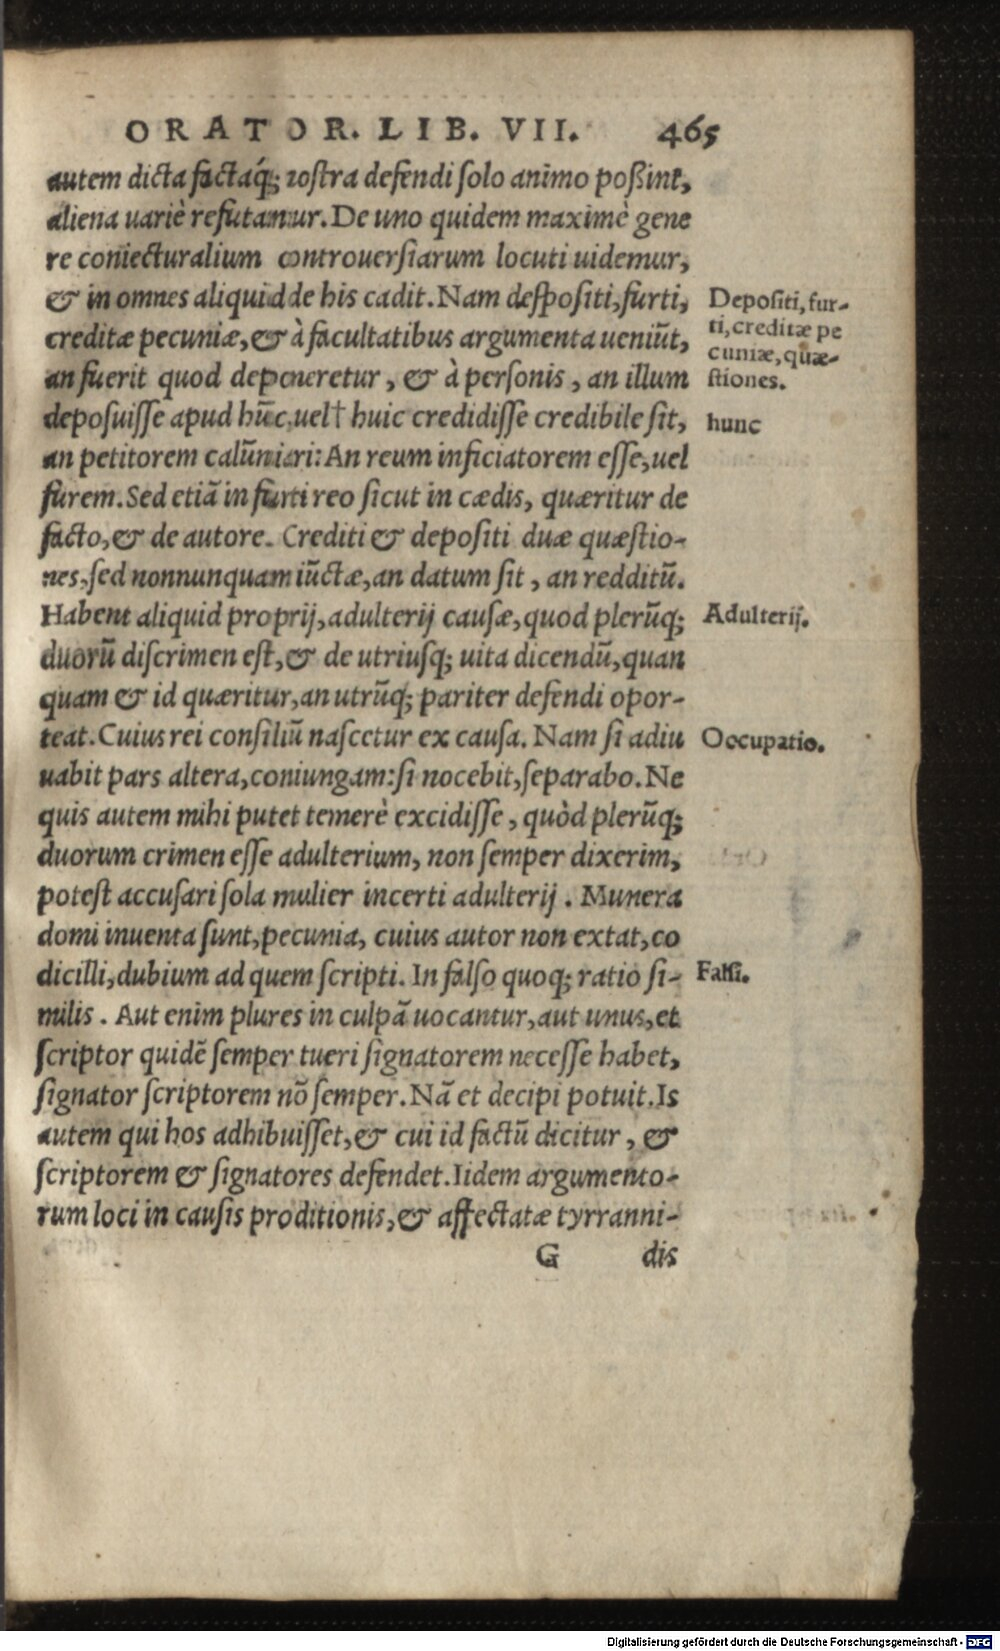 ORATOR. LIB. VII. 465
autem dicta factaq́; nostra defendi solo animo poßint,
aliena uariè refutantur. De uno quidem maximè gene
re coniecturalium controuersiarum locuti uidemur,
& in omnes aliquid de his cadit. Nam despositi, furti,
creditæ pecuniæ, & à facultatibus argumenta ueniūt,
an fuerit quod deponeretur, & à personis, an illum
deposuisse apud hūc, uel† huic credidisse credibile sit,
an petitorem calūniari: An reum inficiatorem esse, uel
furem. Sed etiā in furti reo sicut in cædis, quæritur de
facto, & de autore. Crediti & depositi duæ quæstio-
nes, sed nonnunquam iūctæ, an datum sit, an redditū.
Habent aliquid proprij, adulterij causæ, quod plerūq;
duorū discrimen est, & de utriusq; uita dicendū, quan
quam & id quæritur, an utrūq; pariter defendi opor-
teat. Cuius rei consiliū nascetur ex causa. Nam si adiu
uabit pars altera, coniungam: si nocebit, separabo. Ne
quis autem mihi putet temerè excidisse, quòd plerūq;
duorum crimen esse adulterium, non semper dixerim,
potest accusari sola mulier incerti adulterij. Munera
domi inuenta sunt, pecunia, cuius autor non extat, co
dicilli, dubium ad quem scripti. In falso quoq; ratio si-
milis. Aut enim plures in culpā uocantur, aut unus, et
scriptor quidē semper tueri signatorem necesse habet,
signator scriptorem nō semper. Nā et decipi potuit. Is
autem qui hos adhibuisset, & cui id factū dicitur, &
scriptorem & signatores defendet. Iidem argumento-
rum loci in causis proditionis, & affectatæ tyrranni-
G dis
Depositi, fur-
ti, creditæ pe
cuniæ, quæ-
stiones.
hunc
Adulterij.
Occupatio.
Falsi.
Digitalisierung gefördert durch die Deutsche Forschungsgemeinschaft - DFG